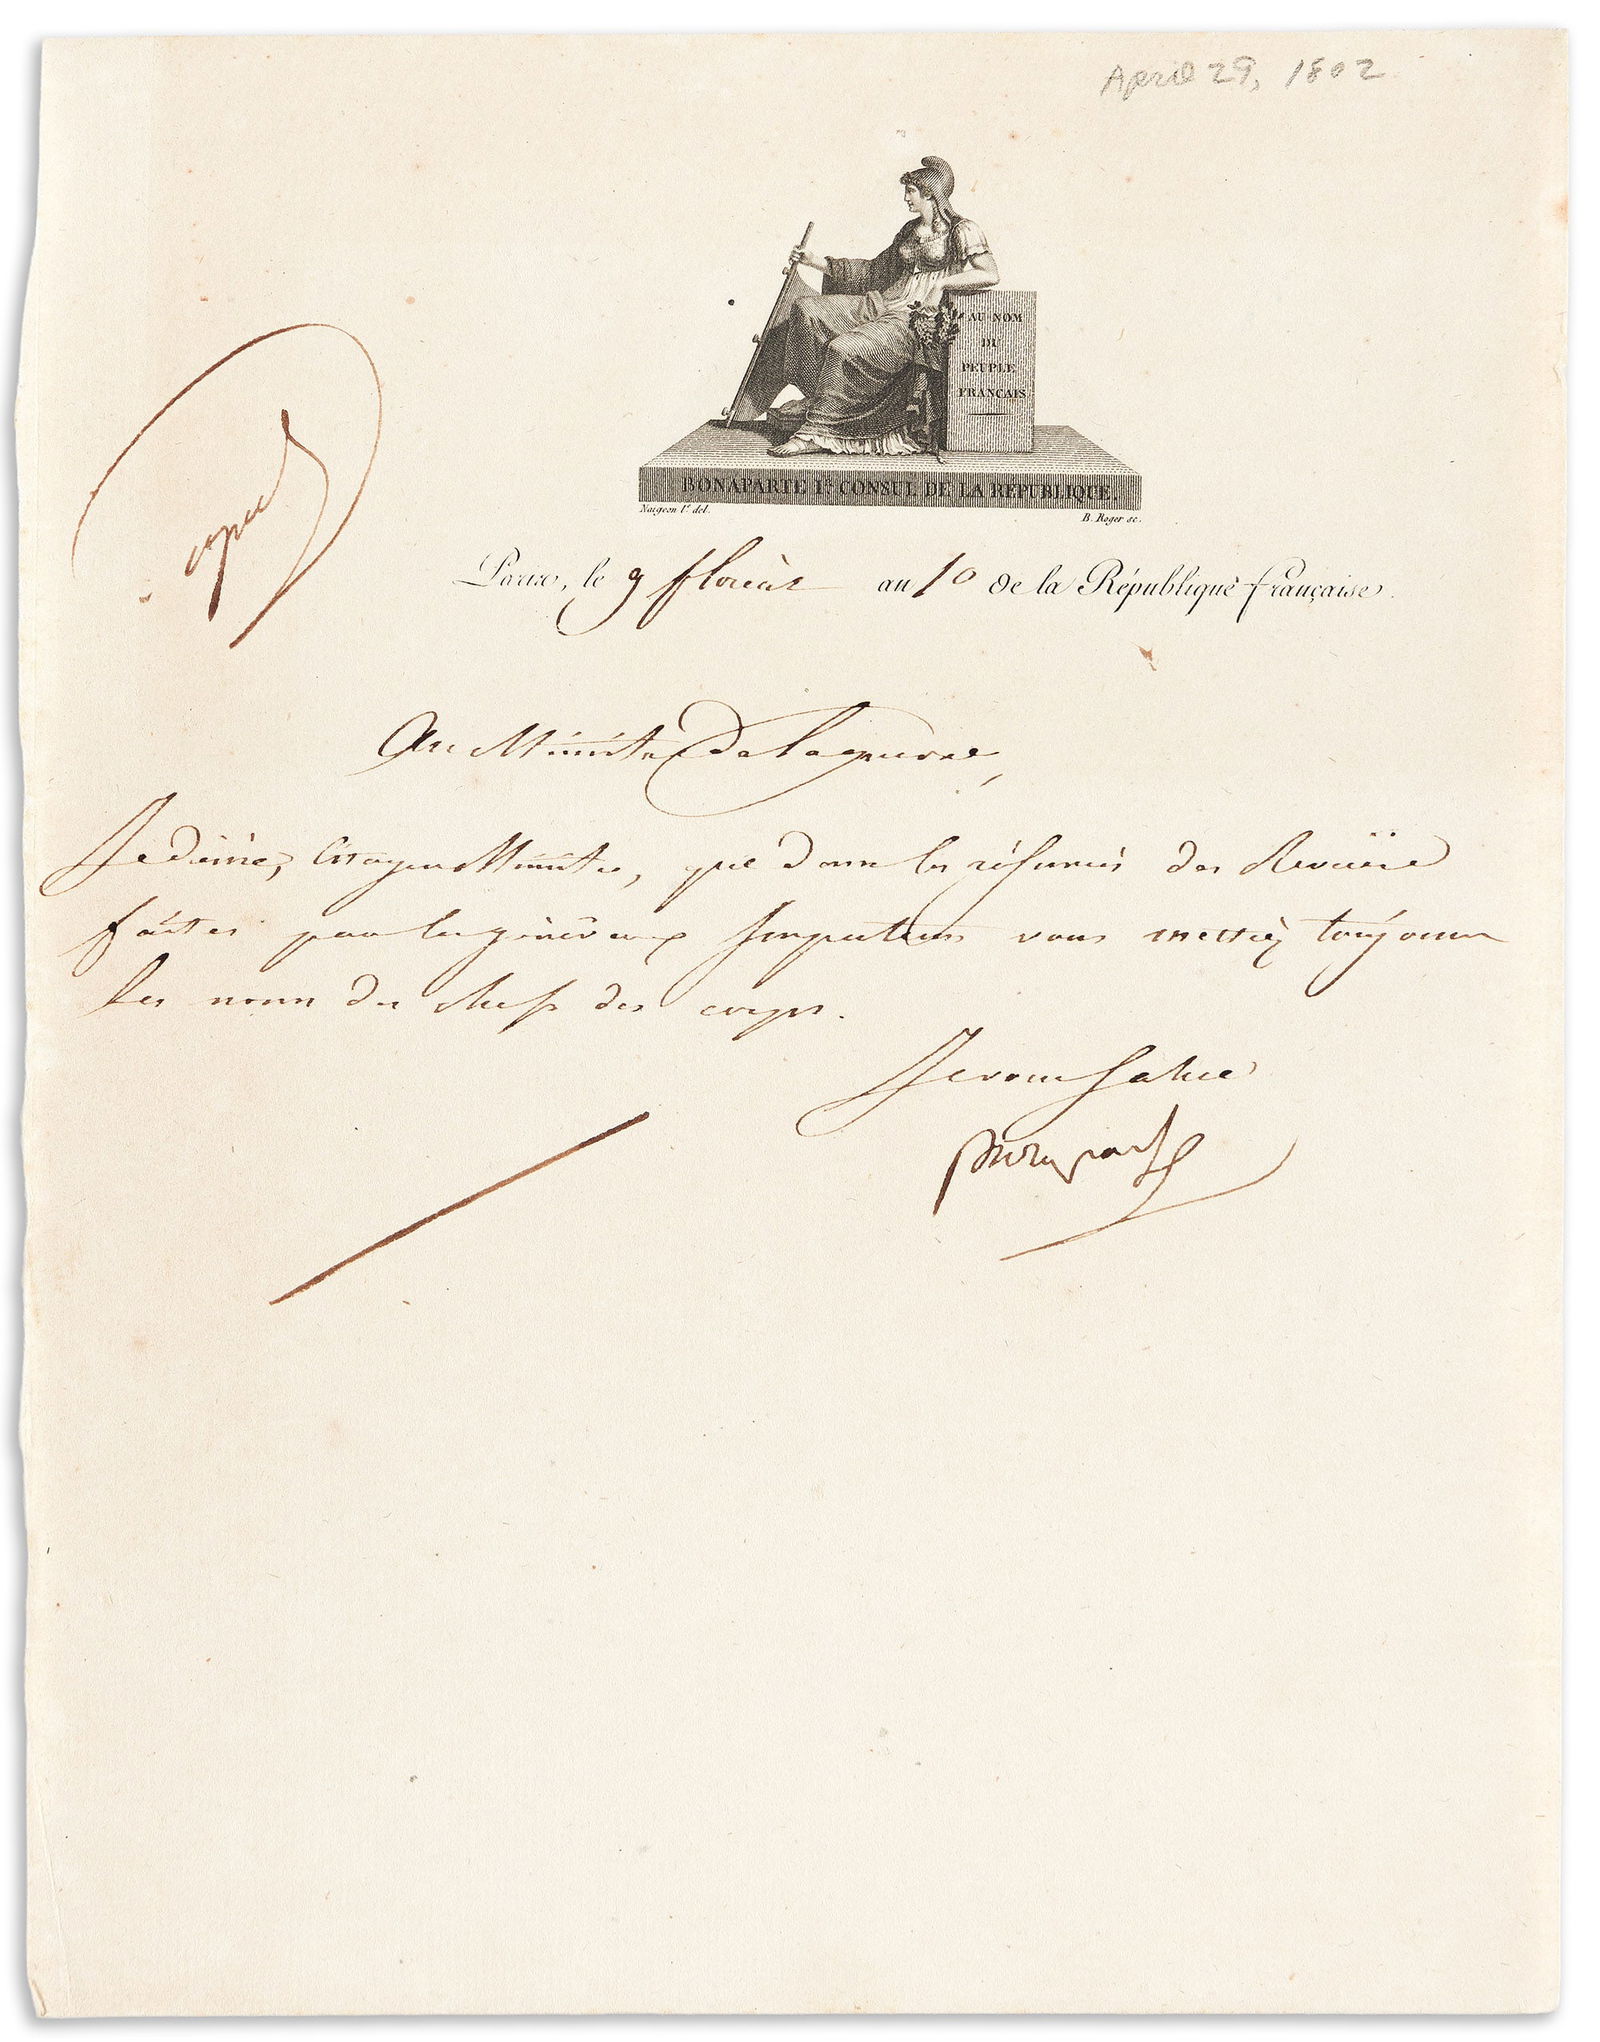 April 29, 1802
AU NOM
DU
PEUPLE
FRANÇAIS
BONAPARTE 1er CONSUL DE LA RÉPUBLIQUE.
Naigeon Ft. del.
B. Roger sc.
Paris, le 9 floréal an 10 de la République française.
Au Ministre de la guerre,
Je désire, Citoyen Ministre, que dans les résumés des Revües
faites par les généraux Inspecteurs vous mettiez toujours
les noms des chefs des corps.
Je vous salue
Bonaparte